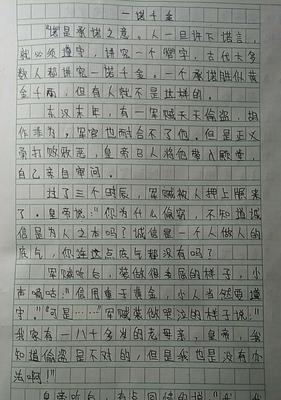 一诺千金
"诺是承诺之意。人一旦许下诺言,
就必须遵守,讲究一个"信"字,古代大多
数人都讲究一诺千金。一个承诺胜似黄
金千两,但有人就不是这样的。
东汉末年,有一军贼天天偷盗,胡
作非为,军官也耐合不了他,但是正义
负打败邪恶,皇帝已人将他带入殿堂,
自己亲自审问。
过了三个时辰,军贼被人押上殿来
了。皇帝说:"你为什么偷窃,不知道诚
信是为人之本吗?诚信是一个人做人的
底气,你连这点底气都没有吗?
军贼听后,装做很委屈的样子,小
声嘀咕:"信用重于黄金,小人当然要遵
守。""可是……"军贼装做哭泣的样子说:"
我家有一八十多岁的老母亲,皇帝,我
知道偷盗是不对的,但是我也是没有办
法啊!"
皇帝听后,有点同情的说:"我